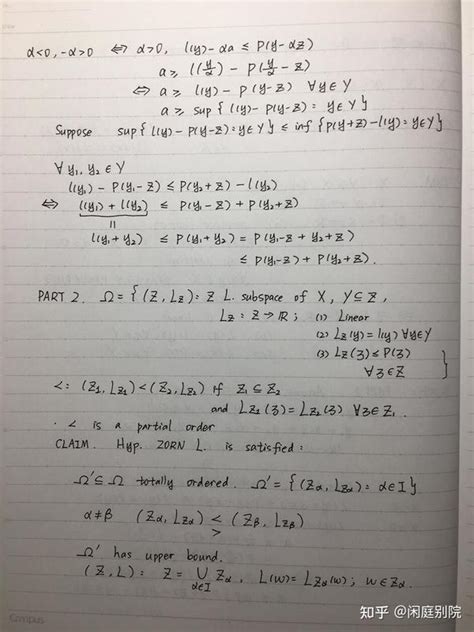 α<0, -α>0 ⟺ α>0, l(y)-αa ≤ P(y-αz)
a ≥ l(y/α) - P(y/α - z)
⟺ a ≥ l(y) - P(y-z) ∀y∈Y
a ≥ sup { l(y) - P(y-z) : y∈Y }
Suppose sup { l(y) - P(y-z) : y∈Y } ≤ inf { P(y+z) - l(y) : y∈Y }
∀ y₁, y₂ ∈ Y
l(y₁) - P(y₁-z) ≤ P(y₂+z) - l(y₂)
⟺ l(y₁) + l(y₂) ≤ P(y₁-z) + P(y₂+z)
||
l(y₁+y₂) ≤ P(y₁+y₂) = P(y₁-z + y₂+z)
≤ P(y₁-z) + P(y₂+z).
PART 2. Ω = { (Z, L_Z) : Z L. subspace of X, Y⊆Z,
L_Z : Z → ℝ ; (1) Linear
(2) L_Z(y) = l(y) ∀y∈Y
(3) L_Z(z) ≤ P(z)
∀z∈Z }
<: (Z₁, L_Z₁) < (Z₂, L_Z₂) if Z₁ ⊆ Z₂
and L_Z₁(z) = L_Z₂(z) ∀z∈Z₁.
· < is a partial order
CLAIM. Hyp. ZORN L. is satisfied :
Ω' ⊆ Ω totally ordered. Ω' = { (Zα, L_Zα) : α∈I }
α≠β (Zα, L_Zα) < (Zβ, L_Zβ)
>
Ω' has upper bound.
(Z, L) : Z = ⋃ Zα, L(w) = L_Zα(w) ; w∈Zα.
α∈I
Campus
知乎 @闲庭别院